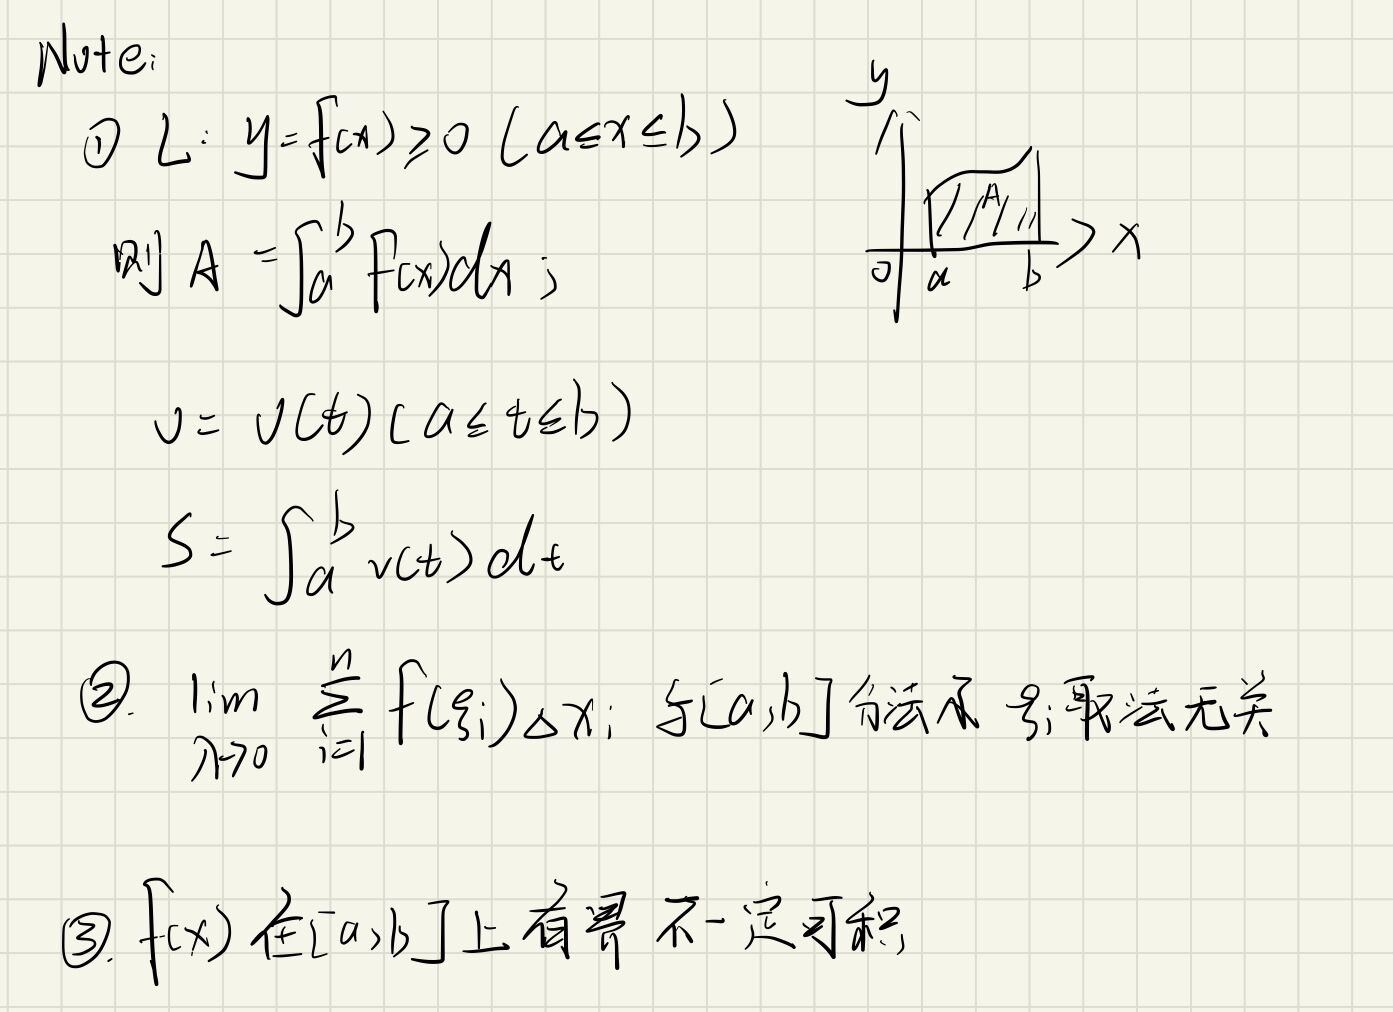 Note:
① L: y=f(x)≥0 (a≤x≤b)
y
A
0 a b x
则 A=∫_a^b f(x)dx;
v=v(t)(a≤t≤b)
S=∫_a^b v(t)dt
②. lim_{λ→0} ∑_{i=1}^n f(ξi)△xi 与[a,b]分法及ξi取法无关
③. f(x)在[a,b]上有界不一定可积